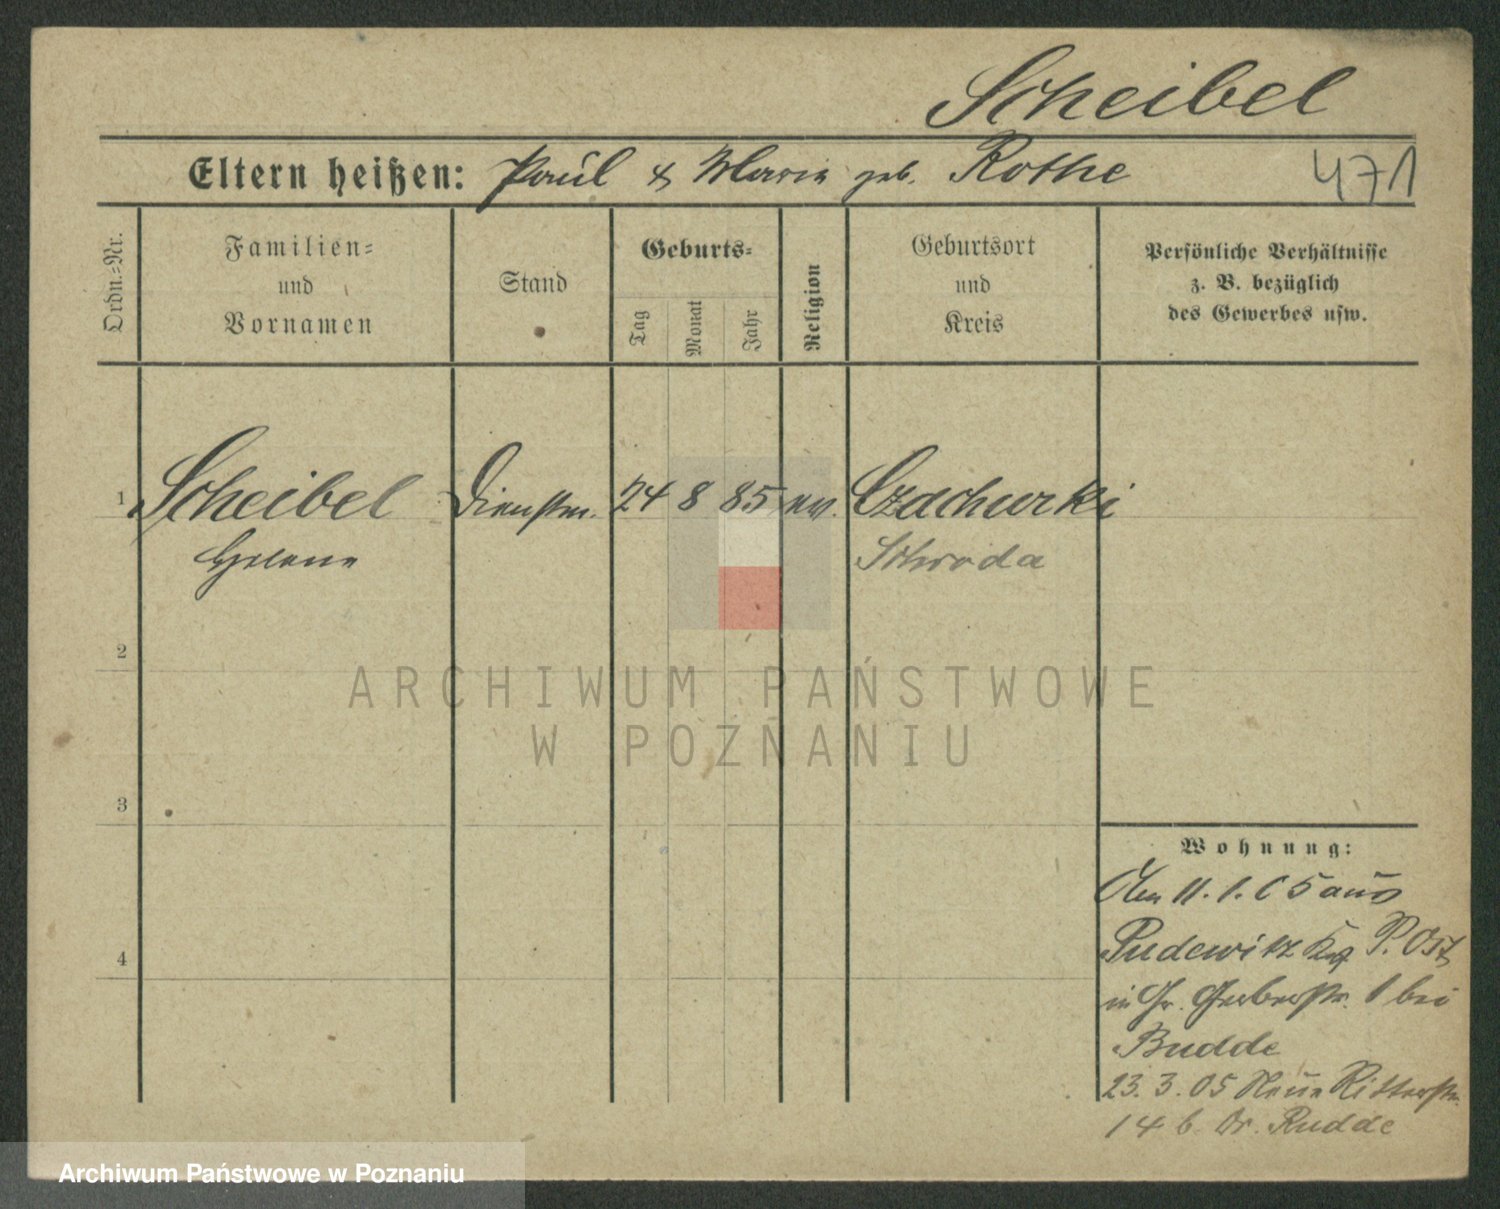 Scheibel
Eltern heißen: Paul & Maria geb. Rothe 471
Ordn.=Nr.
Familien=
und
Vornamen
Stand
Geburts=
Tag
Monat
Jahr
Religion
Geburtsort
und
Kreis
Persönliche Verhältnisse
z. B. bezüglich
des Gewerbes usw.
1 Scheibel Dienstm. 24 8 85 Czachurki
Helene Schroda
2
3
4
Wohnung:
Am 11.1.05 aus
Pudewitz P. Ost
in Gr. Gerberstr. 1 bei
Budde
23.3.05 Neue Ritterstr.
14 b Budde
ARCHIWUM PAŃSTWOWE
W POZNANIU
Archiwum Państwowe w Poznaniu